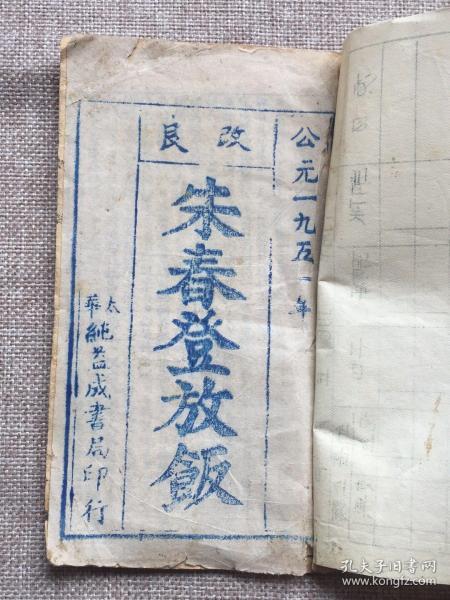 公元一九五一年
改良
朱春登放飯
太華
姚益成書局印行
孔夫子旧书网
www.kongfz.com